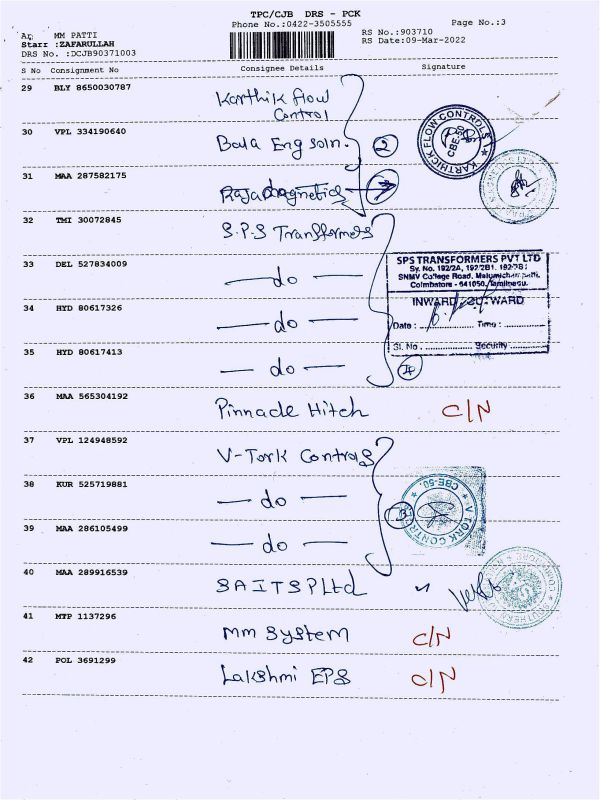 TPC/CJB DRS - PCK
Phone No.:0422-3505555
Page No.:3
MM PATTI
RS No.:903710
Starr :ZAFARULLAH
RS Date:09-Mar-2022
DRS No. :DCJB90371003
S No Consignment No Consignee Details Signature
29 BLY 8650030787 Karthik flow
Control
30 VPL 334190640 Bala Eng soln. 2
31 MAA 287582175
32 TMI 30072845 S.P.S Transformers
33 DEL 527834009 — do —
34 HYD 80617326 — do —
35 HYD 80617413 — do —
36 MAA 565304192 Pinnacle Hitch C/N
37 VPL 124948592 V-Tork Controls
38 KUR 525719881 — do —
39 MAA 286105499 — do —
40 MAA 289916539 SAITSPLtd
41 MTP 1137296 MM System C/N
42 POL 3691299 Lakshmi EPS C/N
KARTHICK FLOW CONTROLS
CBE-50
SPS TRANSFORMERS PVT LTD
Sy. No. 192/2A, 192/2B1,
SNMV College Road,
Coimbatore - 641050, Tamilnadu.
INWARD / OUTWARD
Date : Time :
Sl. No. Security
V TORK CONTROLS
CBE-50.